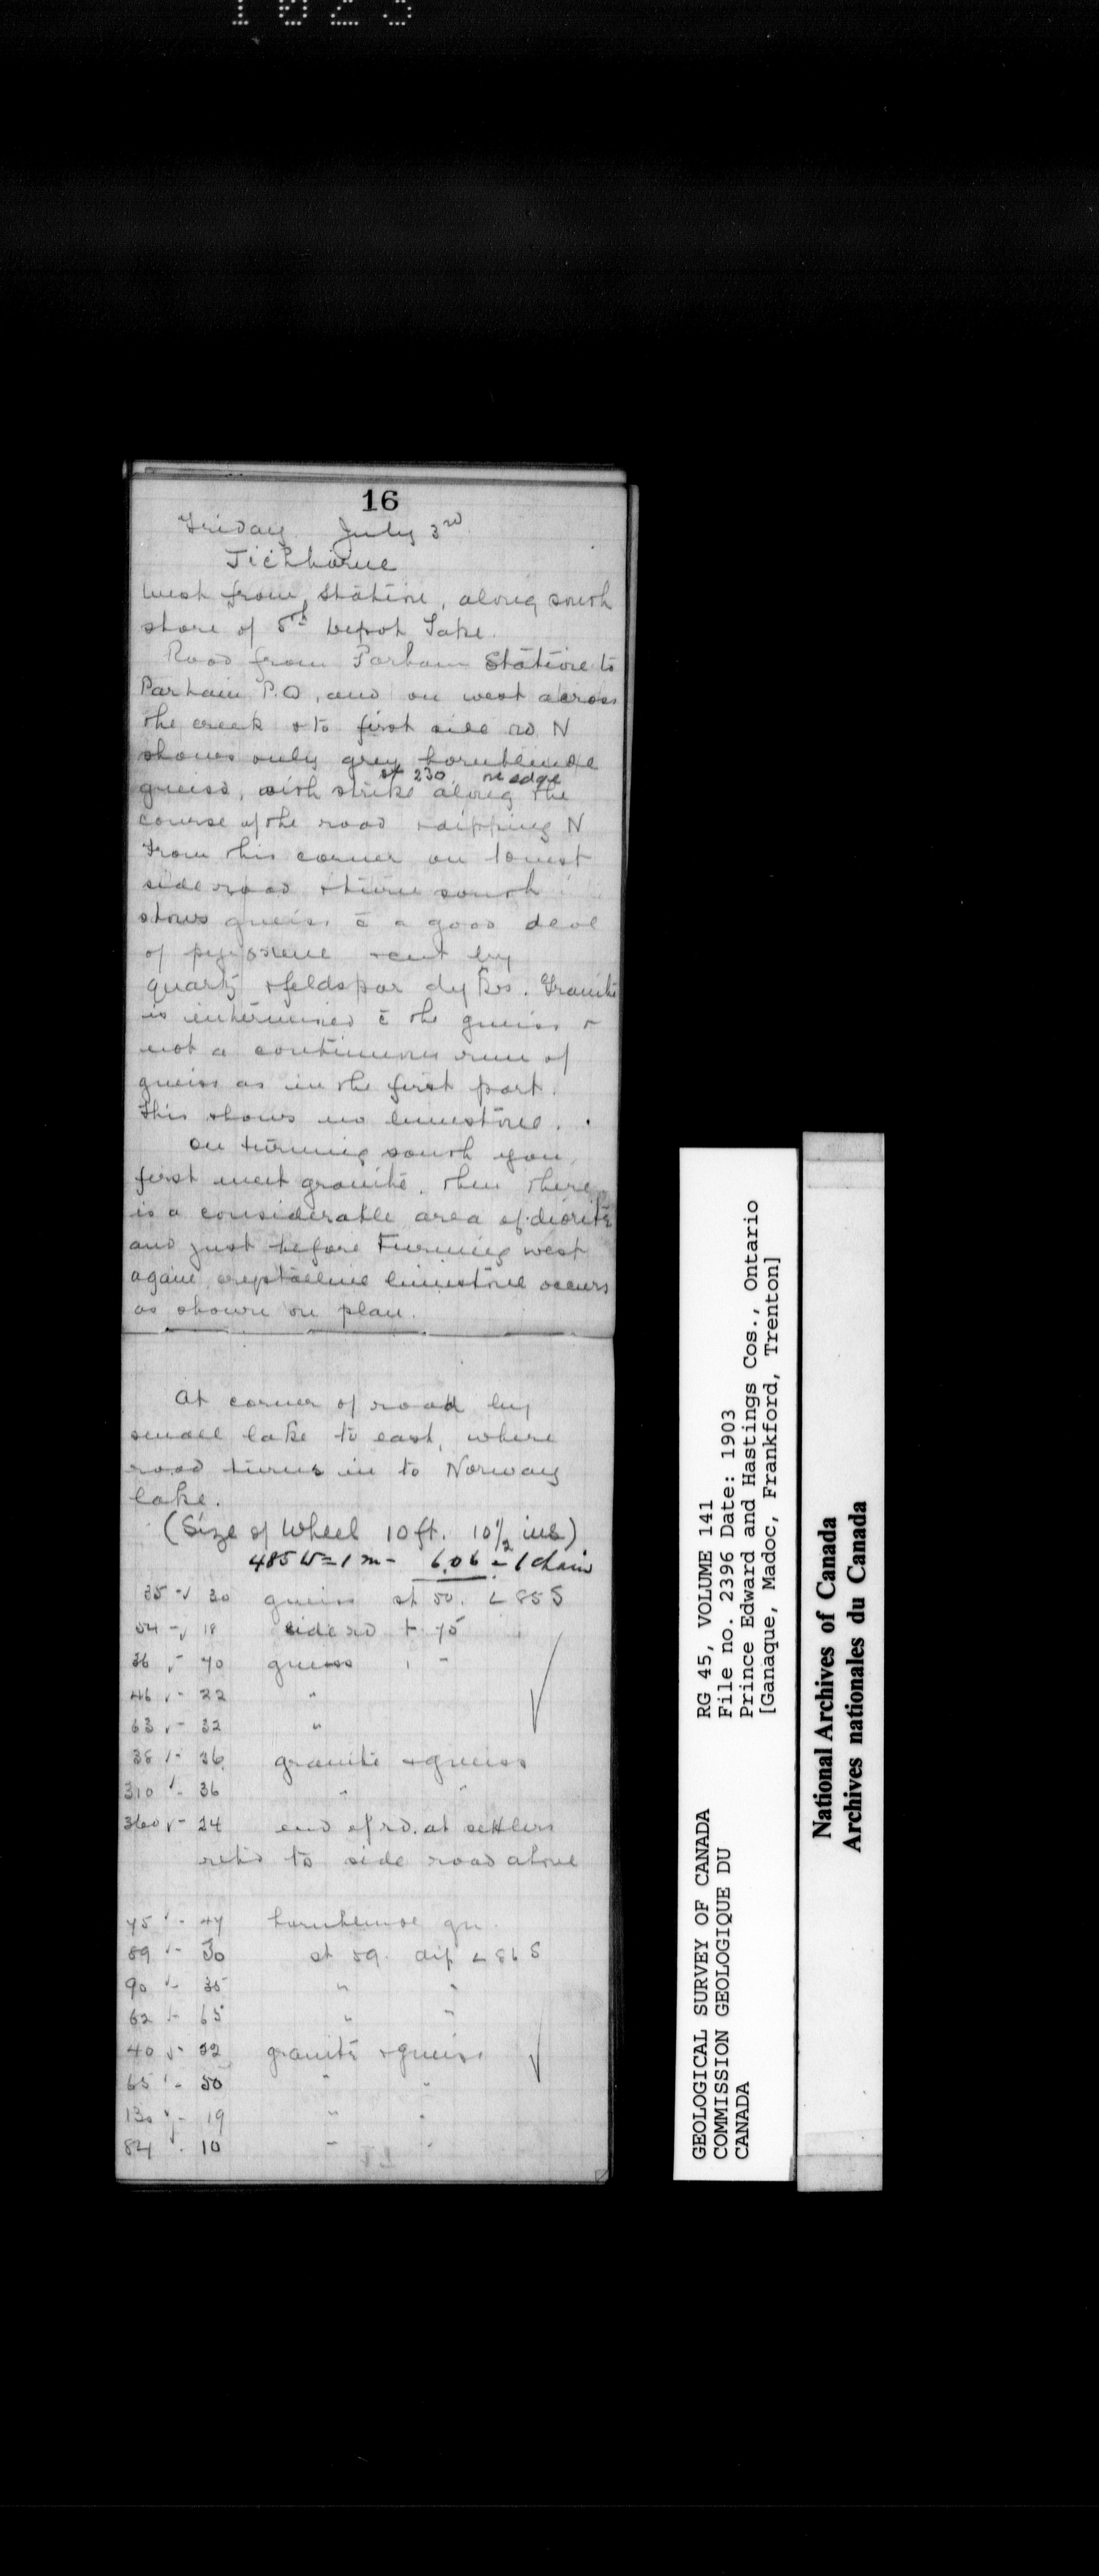 1023
16
Friday July 3rd
Tichborne
West from station, along south
shore of 5th Depot Lake.
Road from Parham Station to
Parham P.O, and on west across
the creek & to first side rd N
shows only grey hornblende
st 230. on edge
gneiss, with strike along the
course of the road & dipping N
From this corner on to west
side road & turn south
shows gneiss c̄ a good deal
of pyroxene & cut by
quartz & feldspar dykes. Granite
is intermixed c̄ the gneiss &
not a continuous run of
gneiss as in the first part.
This shows no limestone.
On turning south you
first meet granite, then there
is a considerable area of diorite
and just before turning west
again crystalline limestone occurs
as shown on plan.
At corner of road by
small lake to east, where
road turns in to Norway
lake.
(Size of Wheel 10 ft. 10 1/2 ins)
485 W = 1 m - 6.06 = 1 chain
35 - 30 gneiss st 50. ∠ 85 S
54 - 18 side rd
36 - 70 gneiss
46 - 22 "
63 - 32 "
38 - 26 granite & gneiss
310 - 36 " "
360 - 24 end of rd. at settlers
retd to side road above
75 - 47 hornblende gn.
89 - 30 st 59. dip ∠ 86 S
90 - 35 " "
62 - 65 " "
40 - 32 granite & gneiss
65 - 50 " "
130 - 19 " "
84 - 10 " "
GEOLOGICAL SURVEY OF CANADA
COMMISSION GEOLOGIQUE DU
CANADA
RG 45, VOLUME 141
File no. 2396 Date: 1903
Prince Edward and Hastings Cos., Ontario
[Ganaque, Madoc, Frankford, Trenton]
National Archives of Canada
Archives nationales du Canada